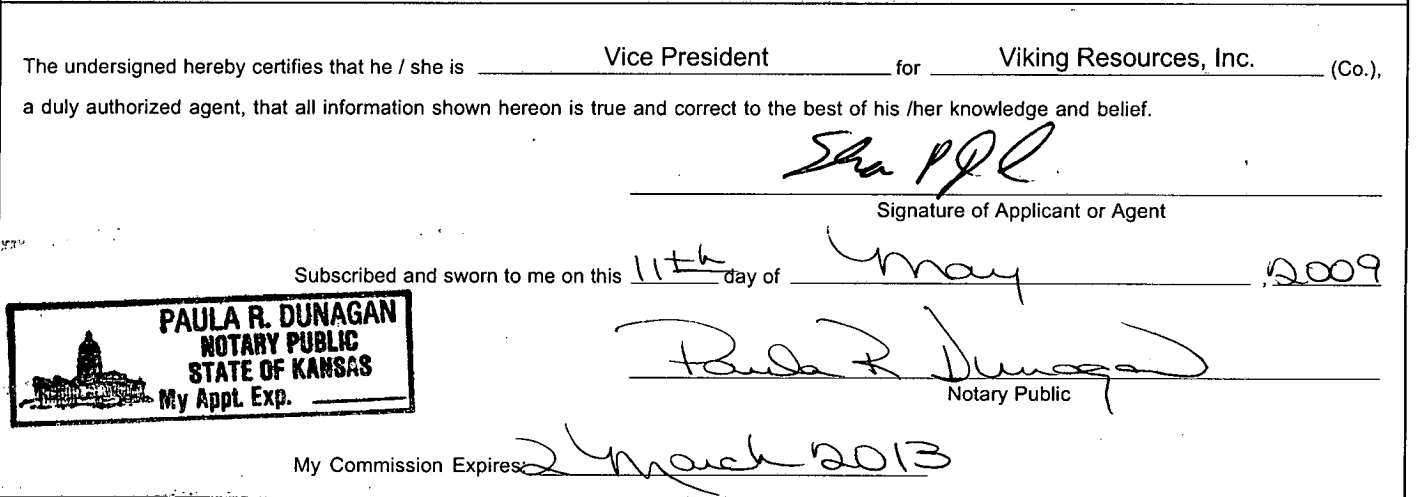 The undersigned hereby certifies that he / she is Vice President for Viking Resources, Inc. (Co.),
a duly authorized agent, that all information shown hereon is true and correct to the best of his /her knowledge and belief.
Signature of Applicant or Agent
Subscribed and sworn to me on this 11th day of May , 2009
PAULA R. DUNAGAN
NOTARY PUBLIC
STATE OF KANSAS
My Appt. Exp.
Paula R Dunagan
Notary Public
My Commission Expires: 2 March 2013